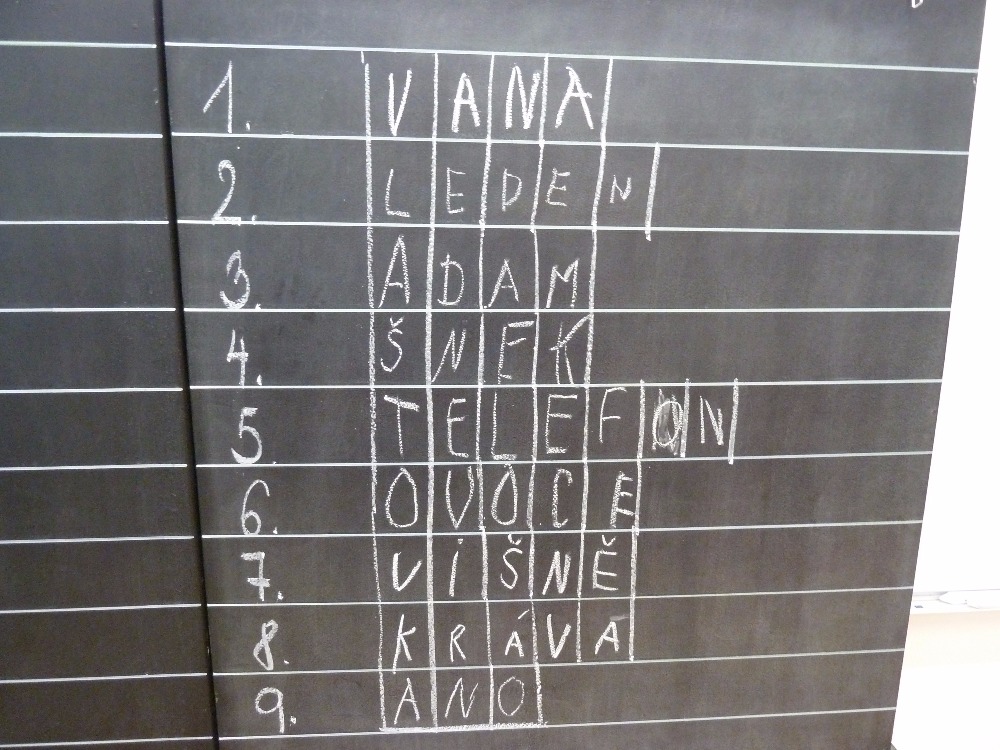 1. VANA
2. LEDEN
3. ADAM
4. ŠNEK
5. TELEFON
6. OVOCE
7. VIŠNĚ
8. KRÁVA
9. ANO